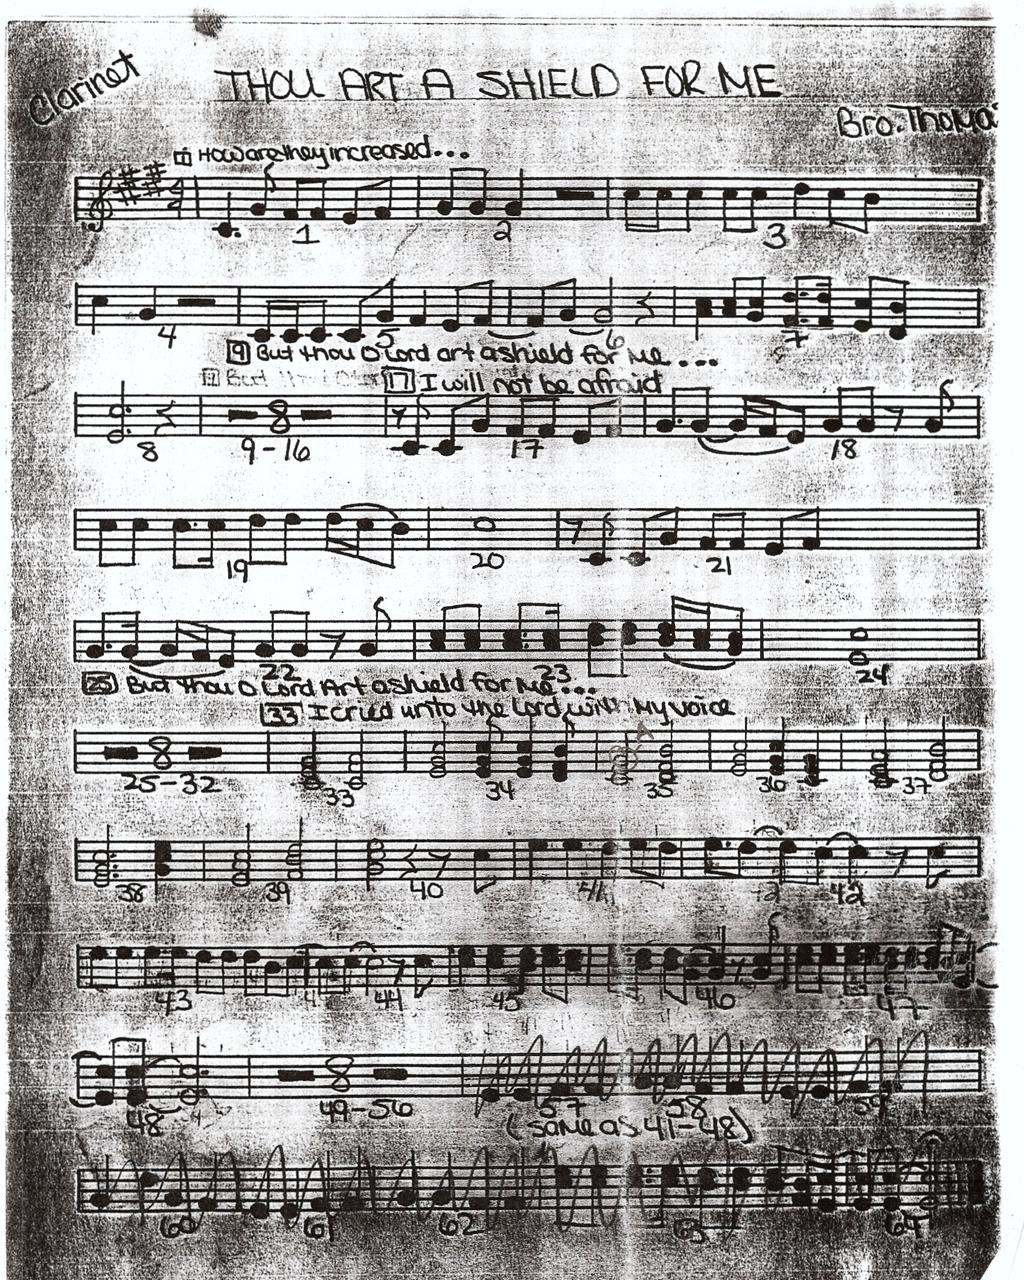 Clarinet
THOU ART A SHIELD FOR ME
Bro. Thoma
1 How are they increased...
1 2 3
4 5 6 7
9 But thou O Lord art a shield for me ...
17 I will not be afraid
8 9-16 17 18
19 20 21
22 23 24
25 But thou O Lord Art a shield for me...
33 I cried unto the Lord with My voice
25-32 33 34 35 36 37
38 39 40 41 42
43 44 45 46 47
48 49-56 57 58 59
(same as 41-48)
60 61 62 63 64